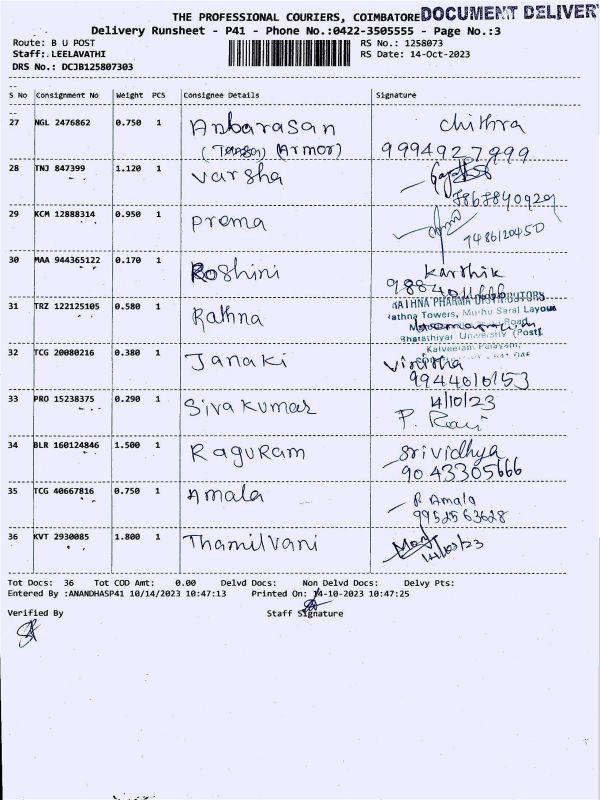 THE PROFESSIONAL COURIERS, COIMBATORE DOCUMENT DELIVER
Delivery Runsheet - P41 - Phone No.:0422-3505555 - Page No.:3
Route: B U POST
RS No.: 1258073
Staff: LEELAVATHI
RS Date: 14-Oct-2023
DRS No.: DCJB125807303
S No Consignment No Weight PCS Consignee Details Signature
27 NGL 2476862 0.750 1 Anbarasan Chithra
(Armor) 9994927999
28 TNJ 847399 1.120 1 Varsha
7867840920
29 KCM 12888314 0.950 1 Prema
9486120450
30 MAA 944365122 0.170 1 Roshini Karthik
31 TRZ 122125105 0.580 1 Rathna
RATHNA PHARMA DISTRIBUTORS
Rathna Towers, Muthu Saral Layout
Road
Bharathiyar University (Post)
Kalveeram Palayam,
32 TCG 20080216 0.380 1 Janaki Vinitha
9944010153
33 PRO 15238375 0.290 1 Sivakumar 14/10/23
P. Ravi
34 BLR 160124846 1.500 1 Raguram Srividhya
9043305666
35 TCG 40667816 0.750 1 Amala R Amala
9952563628
36 KVT 2930085 1.800 1 Thamilvani
Tot Docs: 36 Tot COD Amt: 0.00 Delvd Docs: Non Delvd Docs: Delvy Pts:
Entered By :ANANDHASP41 10/14/2023 10:47:13 Printed On: 14-10-2023 10:47:25
Verified By Staff Signature